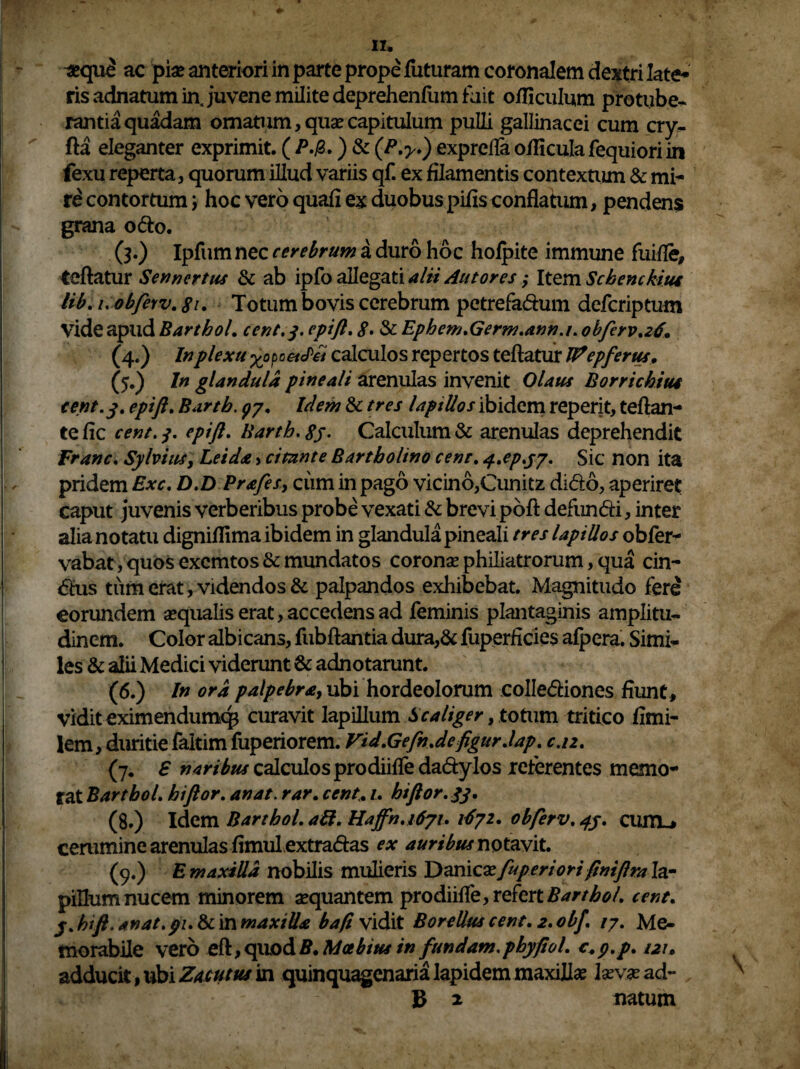 II.
æque ac piæ anteriori in parte prope ſuturam coronalem dextri late-
ris adnatum in juvene milite deprehenſum fuit oſſiculum protube-
rantiâ quâdam ornatum, quæ capitulum pulli gallinacei cum cry-
ſtâ eleganter exprimit. ( P.β. ) & (P.γ.) expreſſa oſſicula ſequiori in
ſexu reperta, quorum illud variis qſ. ex filamentis contextum & mi-
rè contortum; hoc verò quaſi ex duobus piſis conflatum, pendens
grana octo.
(3.) Ipſum nec cerebrum à duro hôc hoſpite immune fuiſſe,
teſtatur Sennertus & ab ipſo allegati alii Autores; Item Schenckius
lib. 1. obſerv. 81. Totum bovis cerebrum petrefactum deſcriptum
vide apud Barthol. cent. 3. epiſt. 8. & Ephem.Germ.ann.1. obſerv.26.
(4.) In plexu χοροειδεῖ calculos repertos teſtatur Wepferus.
(5.) In glandulâ pineali arenulas invenit Olaus Borrichius
cent. 3. epiſt. Barth. 97. Idem & tres lapillos ibidem reperit, teſtan-
te ſic cent. 3. epiſt. Barth. 85. Calculum & arenulas deprehendit
Franc. Sylvius, Leidæ, citante Bartholino cent. 4.ep.57. Sic non ita
pridem Exc. D.D Præſes, cùm in pago vicinô,Cunitz dictô, aperiret
caput juvenis verberibus probè vexati & brevi pòſt defuncti, inter
alia notatu digniſſima ibidem in glandulâ pineali tres lapillos obſer-
vabat, quos exemtos & mundatos coronæ philiatrorum, quâ cin-
ctus tùm erat, videndos & palpandos exhibebat. Magnitudo ferè
eorundem æqualis erat, accedens ad ſeminis plantaginis amplitu-
dinem. Color albicans, ſubſtantia dura,& ſuperficies aſpera. Simi-
les & alii Medici viderunt & adnotarunt.
(6.) In orâ palpebræ, ubi hordeolorum collectiones fiunt,
vidit eximendumq; curavit lapillum Scaliger, totum tritico ſimi-
lem, duritie ſaltim ſuperiorem. Vid.Geſn.de figur.lap. c.12.
(7. E naribus calculos prodiiſſe dactylos referentes memo-
rat Barthol. hiſtor. anat. rar. cent. 1. hiſtor. 33.
(8.) Idem Barthol. act. Haffn. 1671. 1672. obſerv. 45. cum
cerumine arenulas ſimul extractas ex auribus notavit.
(9.) E maxillâ nobilis mulieris Danicæ ſuperiori ſiniſtra la-
pillum nucem minorem æquantem prodiiſſe, refert Barthol. cent.
5. hiſt. anat. 91. & in maxillæ baſi vidit Borellus cent. 2. obſ. 17. Me-
morabile verò eſt, quod B. Mœbius in fundam. phyſiol. c.9.p. 121.
adducit, ubi Zacutus in quinquagenariâ lapidem maxillæ lævæ ad-
B 2 natum